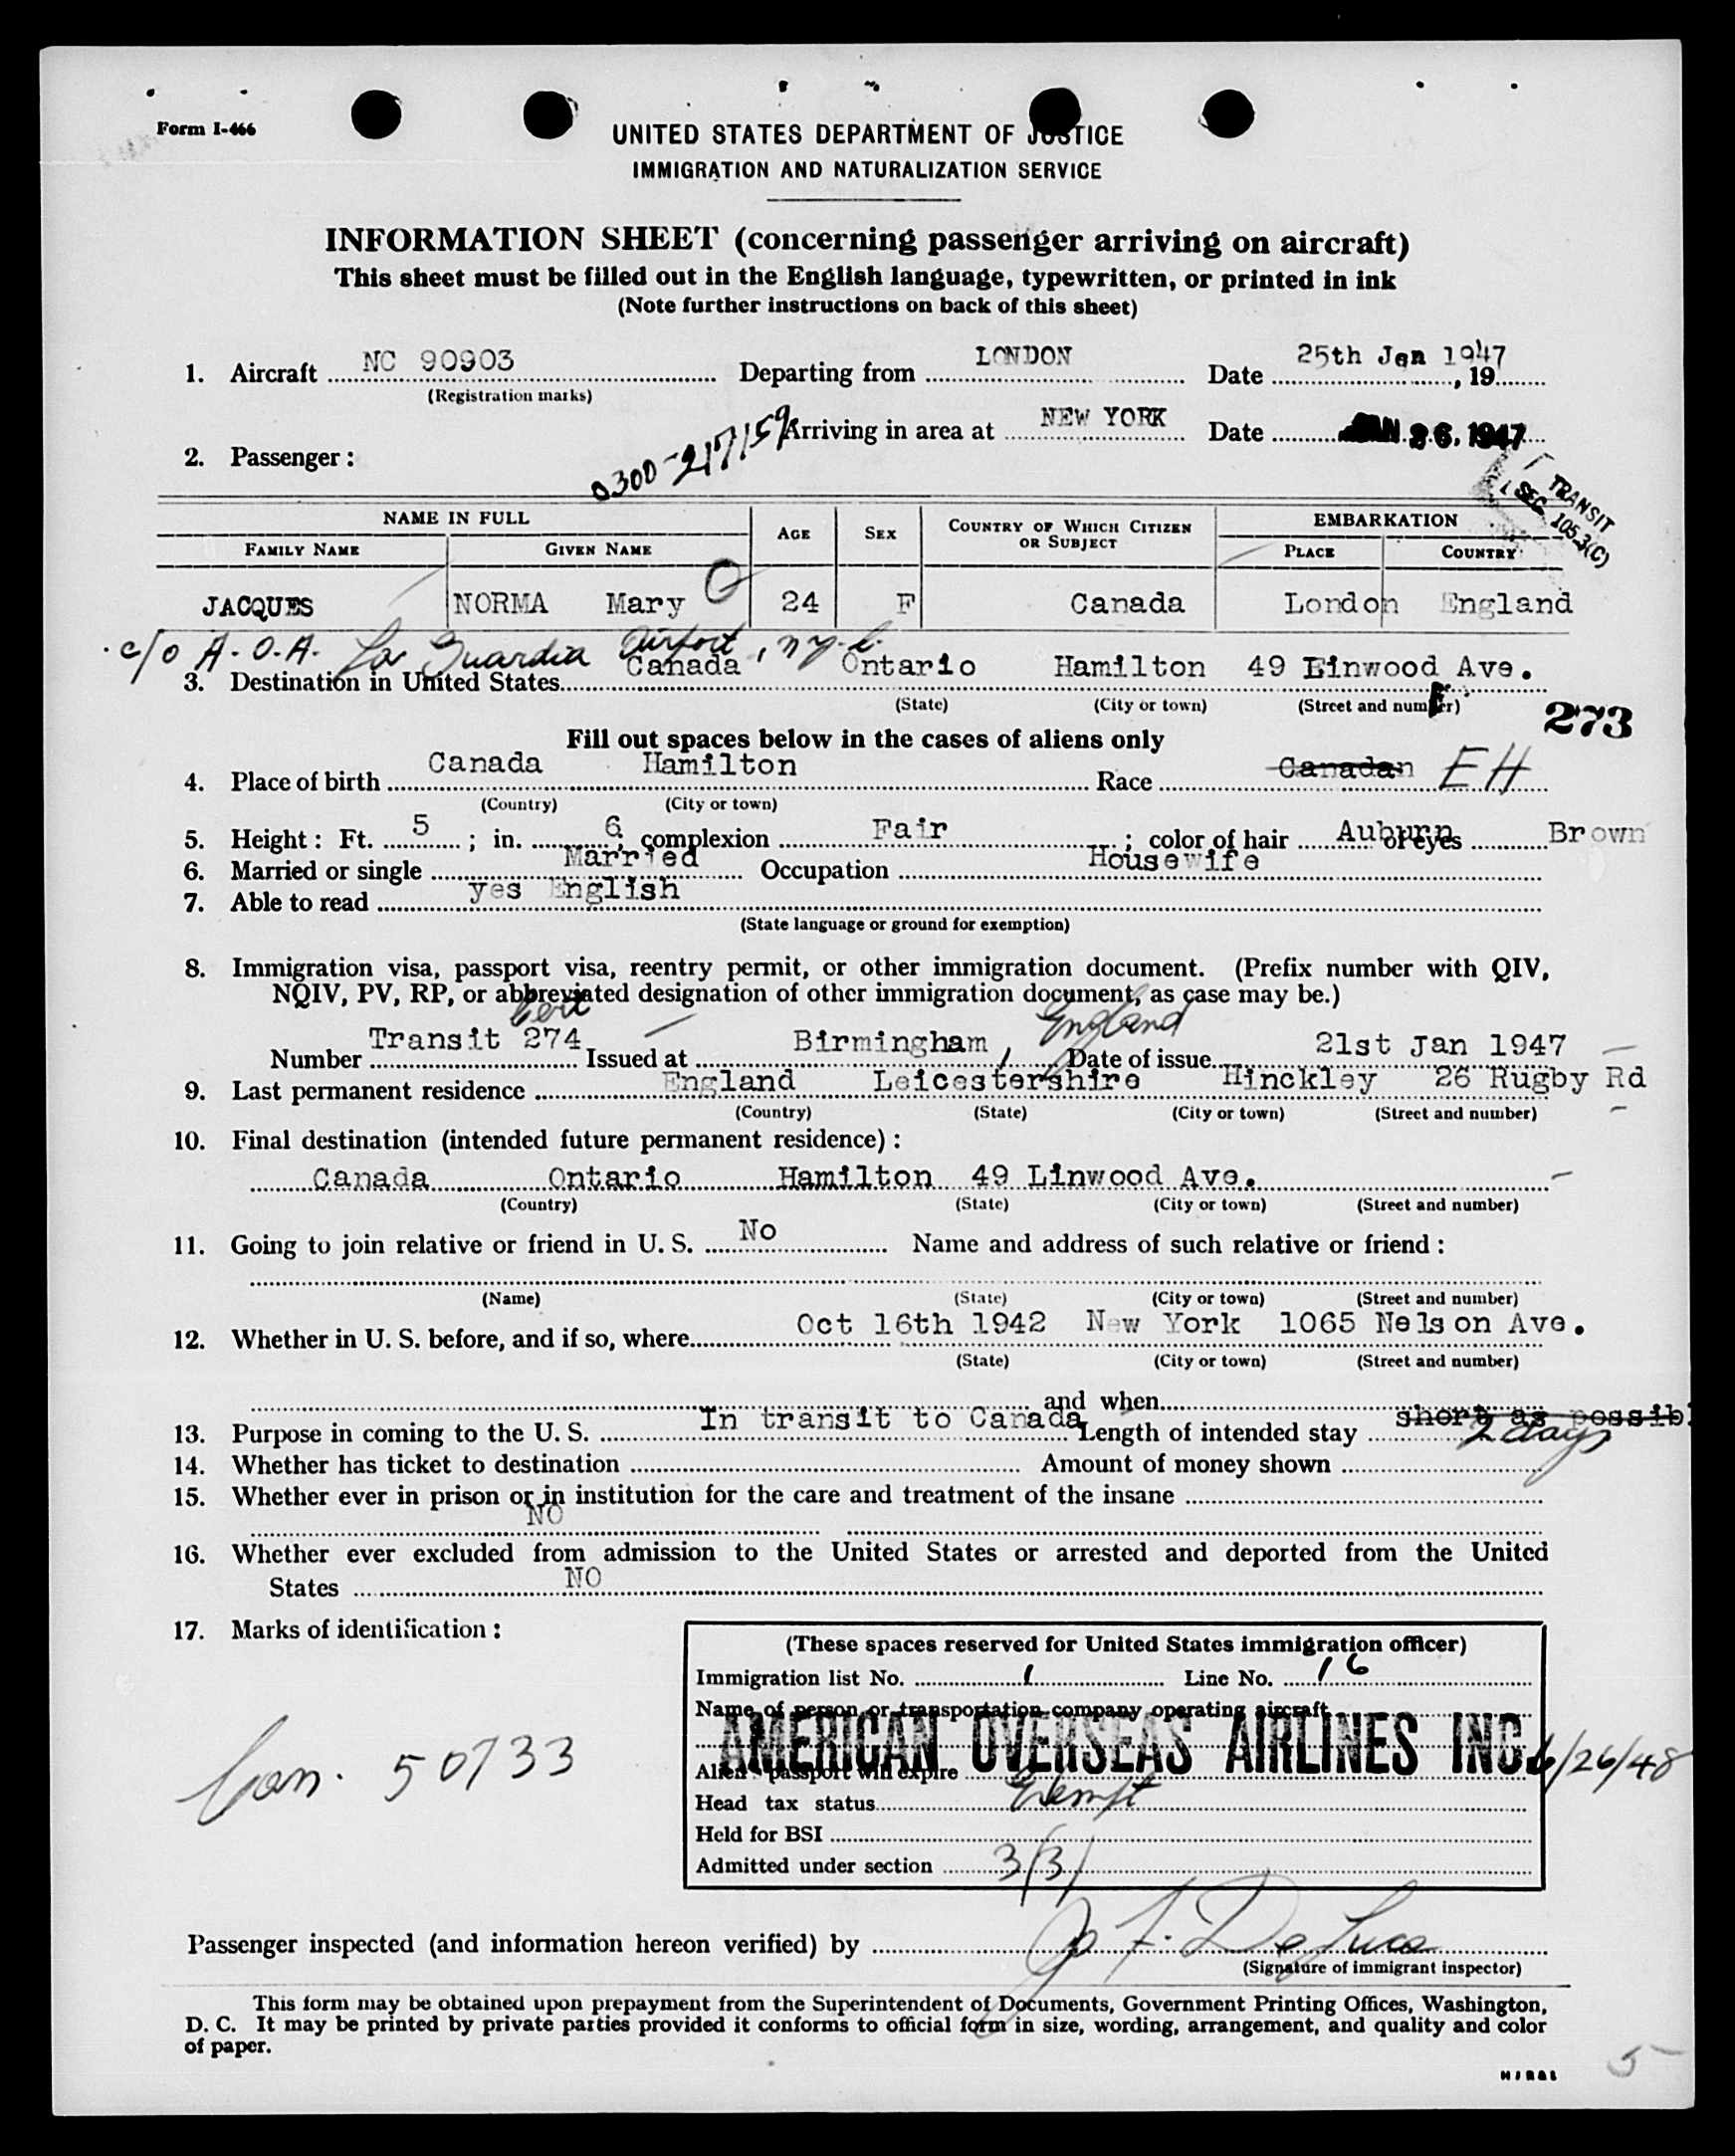 Form I-466
UNITED STATES DEPARTMENT OF JUSTICE
IMMIGRATION AND NATURALIZATION SERVICE
INFORMATION SHEET (concerning passenger arriving on aircraft)
This sheet must be filled out in the English language, typewritten, or printed in ink
(Note further instructions on back of this sheet)
1. Aircraft NC 90903 Departing from LONDON Date 25th Jan 1947, 19
(Registration marks)
Arriving in area at NEW YORK Date JAN 26. 1947
2. Passenger: 0300-217159
TRANSIT
SEC. 105.3(C)
NAME IN FULL AGE SEX COUNTRY OF WHICH CITIZEN OR SUBJECT EMBARKATION
FAMILY NAME GIVEN NAME PLACE COUNTRY
JACQUES NORMA Mary 24 F Canada London England
c/o A.O.A. La Guardia Airport, N.Y.C.
3. Destination in United States Canada Ontario Hamilton 49 Linwood Ave.
(State) (City or town) (Street and number)
273
Fill out spaces below in the cases of aliens only
4. Place of birth Canada Hamilton Race Canadan EH
(Country) (City or town)
5. Height: Ft. 5; in. 6, complexion Fair; color of hair Auburn of eyes Brown
6. Married or single Married Occupation Housewife
7. Able to read yes English
(State language or ground for exemption)
8. Immigration visa, passport visa, reentry permit, or other immigration document. (Prefix number with QIV,
NQIV, PV, RP, or abbreviated designation of other immigration document, as case may be.)
Cert England
Number Transit 274 Issued at Birmingham, Date of issue 21st Jan 1947
9. Last permanent residence England Leicestershire Hinckley 26 Rugby Rd
(Country) (State) (City or town) (Street and number)
10. Final destination (intended future permanent residence):
Canada Ontario Hamilton 49 Linwood Ave.
(Country) (State) (City or town) (Street and number)
11. Going to join relative or friend in U. S. No Name and address of such relative or friend:
(Name) (State) (City or town) (Street and number)
12. Whether in U. S. before, and if so, where Oct 16th 1942 New York 1065 Nelson Ave.
(State) (City or town) (Street and number)
and when
13. Purpose in coming to the U. S. In transit to Canada Length of intended stay short as possibl 2 days
14. Whether has ticket to destination Amount of money shown
15. Whether ever in prison or in institution for the care and treatment of the insane
NO
16. Whether ever excluded from admission to the United States or arrested and deported from the United
States NO
17. Marks of identification:
Can. 50733
(These spaces reserved for United States immigration officer)
Immigration list No. 1 Line No. 16
Name of person or transportation company operating aircraft
AMERICAN OVERSEAS AIRLINES INC.
Alien's passport will expire 6/26/48
Head tax status Exempt
Held for BSI
Admitted under section 3(3)
Passenger inspected (and information hereon verified) by
(Signature of immigrant inspector)
This form may be obtained upon prepayment from the Superintendent of Documents, Government Printing Offices, Washington,
D. C. It may be printed by private parties provided it conforms to official form in size, wording, arrangement, and quality and color
of paper.
5